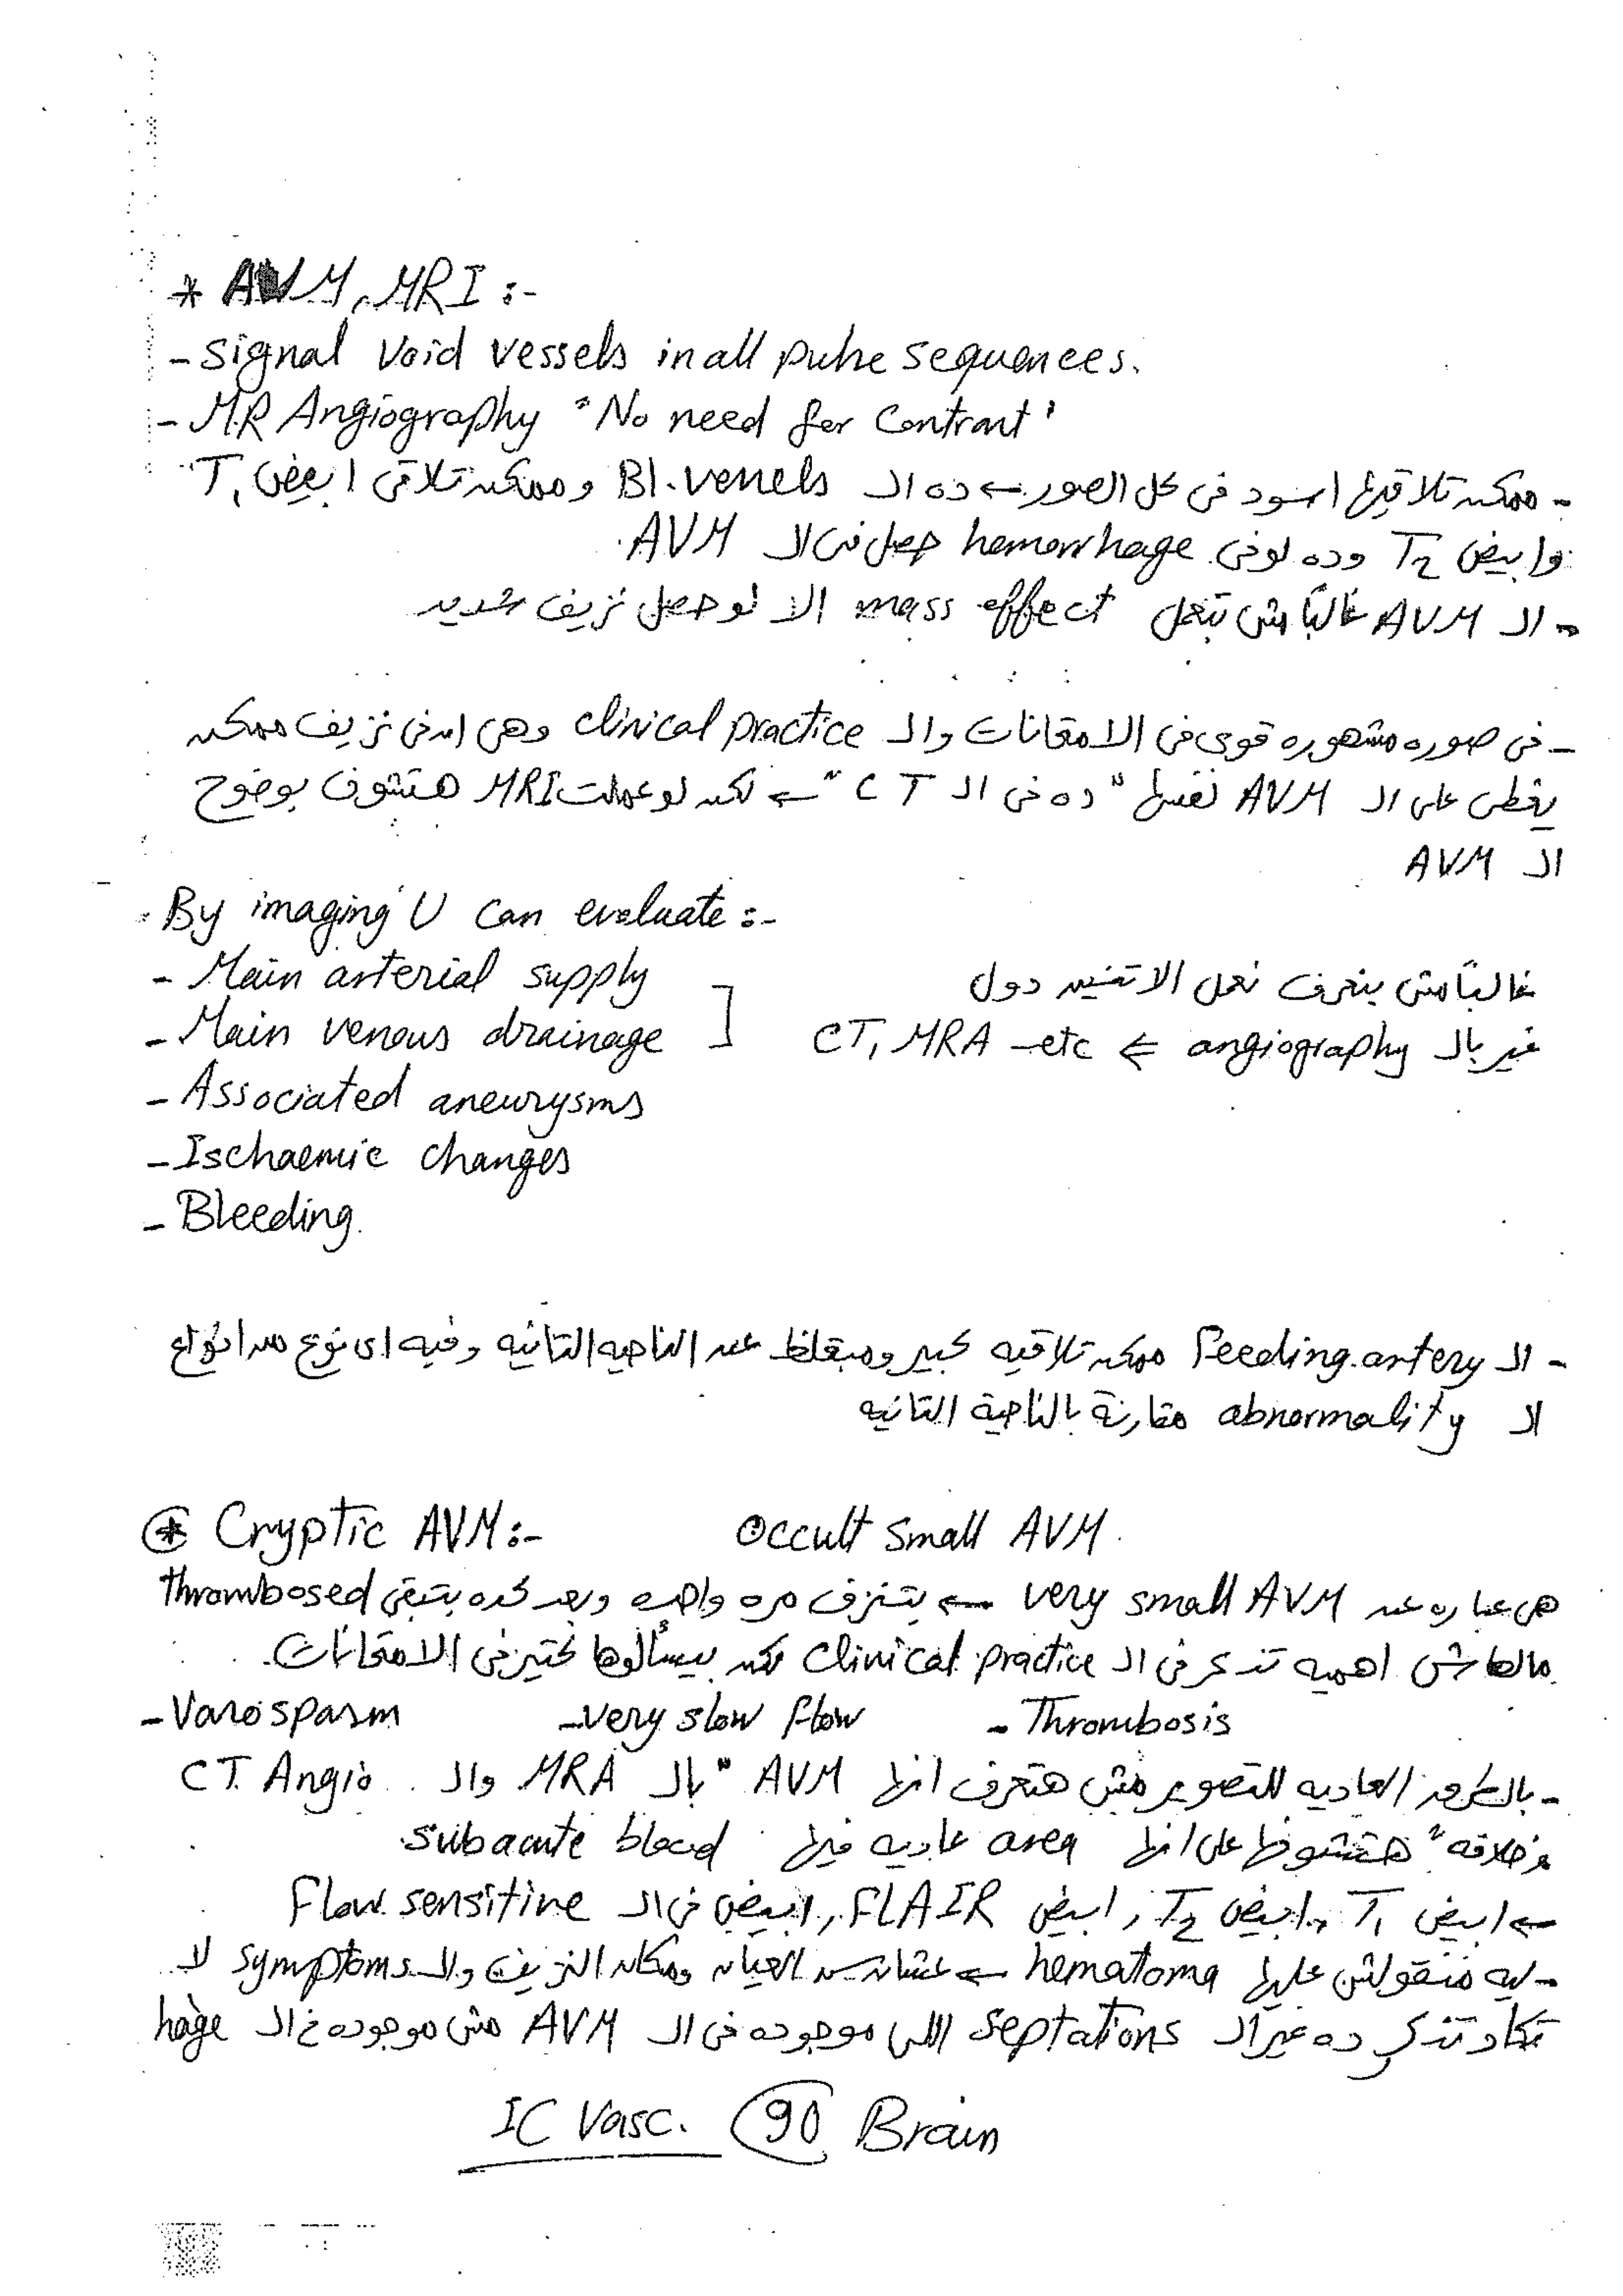 * AVM, MRI :-
- Signal Void vessels in all pulse sequences.
- MR Angiography "No need for Contrast"
- ممكن تلاقيها اسود فى كل الصور ← ده ال Bl. vessels وممكن تلاقى ابيض T1
وابيض T2 وده لوفى hemorrhage حصل فى ال AVM.
- ال AVM غالباً مش بتعمل mass effect الا لو حصل نزيف شديد
- فى صوره مشهوره قوى فى الامتحانات وال clinical practice وهى ان فى نزيف ممكن
يغطى على ال AVM نفسها "ده فى ال CT" ← لكن لو عملت MRI هتشوف بوضوح
ال AVM
By imaging U Can evaluate :-
- Main arterial supply
- Main venous drainage ] غالباً مش بنعرف نعمل الاتنين دول
غير بال angiography ⇐ CT, MRA - etc
- Associated aneurysms
- Ischaemic changes
- Bleeding.
- ال Feeding artery ممكن تلاقيه كبير ومتغلظ عن الناحيه التانيه وفيه اى نوع من انواع
ال abnormality مقارنة بالناحية التانيه
* Cryptic AVM :- Occult Small AVM.
هى عباره عن very small AVM ← بتنزف مره واحده وبعد كده بتبقى thrombosed
مالهاش اهميه تذكر فى ال Clinical practice لكن بيسألوها كتير فى الامتحانات.
- Vasospasm - very slow flow - Thrombosis
- بالطرق العاديه للتصوير مش هتعرف انها AVM "بال MRA وال CT Angio
وخلافه" هتشوفها على انها area عاديه فيها subacute blood
← ابيض T1, ابيض T2, ابيض FLAIR, ابيض فى ال Flow sensitive
- ليه منقولش عليها hematoma ← عشان سن العيان ومكان النزيف وال symptoms لا
تكاد تذكر ده غير ال septations اللى موجوده فى ال AVM مش موجوده فى ال hage
IC Vasc. 90 Brain